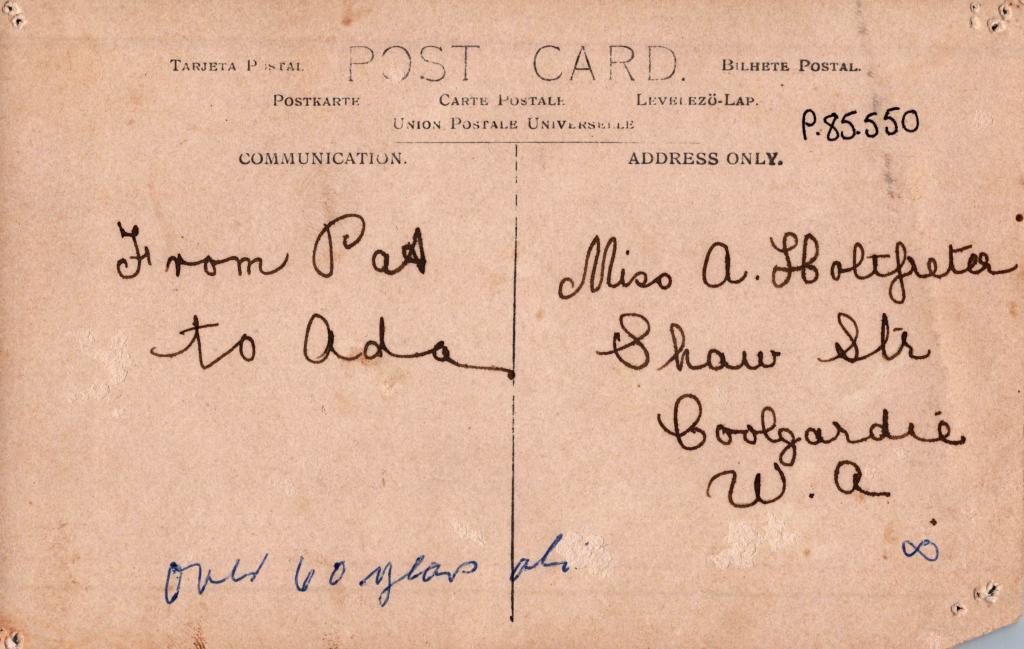 TARJETA POSTAL. POST CARD. BILHETE POSTAL.
POSTKARTE CARTE POSTALE LEVELEZŐ-LAP.
UNION POSTALE UNIVERSELLE
P.85.550
COMMUNICATION.
From Pat
to Ada
ADDRESS ONLY.
Miss A. Holtfreter
Shaw Str
Coolgardie
W. A
over 60 years